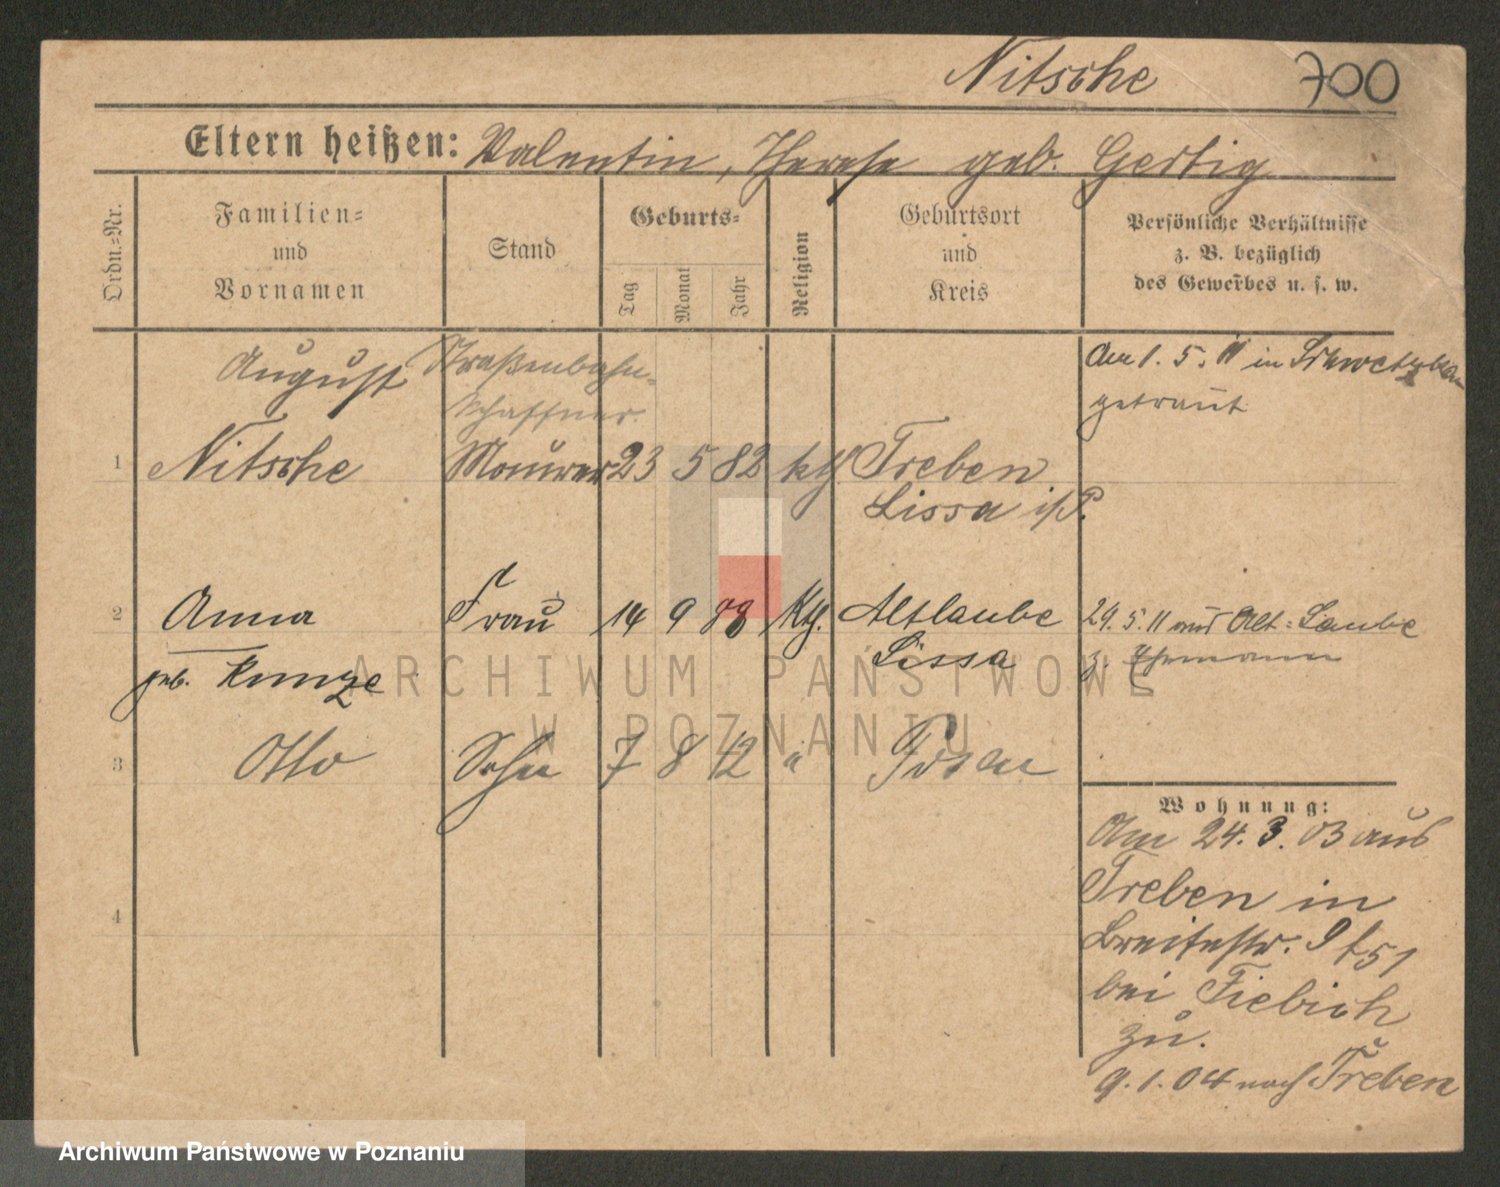 Nitsche 700
Eltern heißen: Valentin, Therese geb. Gertig
Ordn.-Nr.
Familien-
und
Vornamen
Stand
Geburts-
Tag
Monat
Jahr
Religion
Geburtsort
und
Kreis
Persönliche Verhältnisse
z. B. bezüglich
des Gewerbes u. s. w.
August Straßenbahn-
schaffner.
1 Nitsche Maurer 23 5 82 kth Treben
Lissa i/P.
Am 1. 5. 11 in
getraut
2 Anna Frau 14 9 88 Kth. Altlaube
geb. Kunze Lissa
29. 5. 11 aus Alt-Laube
z. Ehemann
3 Otto Sohn 7 8 12 " Posen
4
Wohnung:
Am 24. 3. 03 aus
Treben in
Breitestr. 9
bei Fiebich
zu.
9. 1. 04 nach Treben
ARCHIWUM PAŃSTWOWE
W POZNANIU
Archiwum Państwowe w Poznaniu